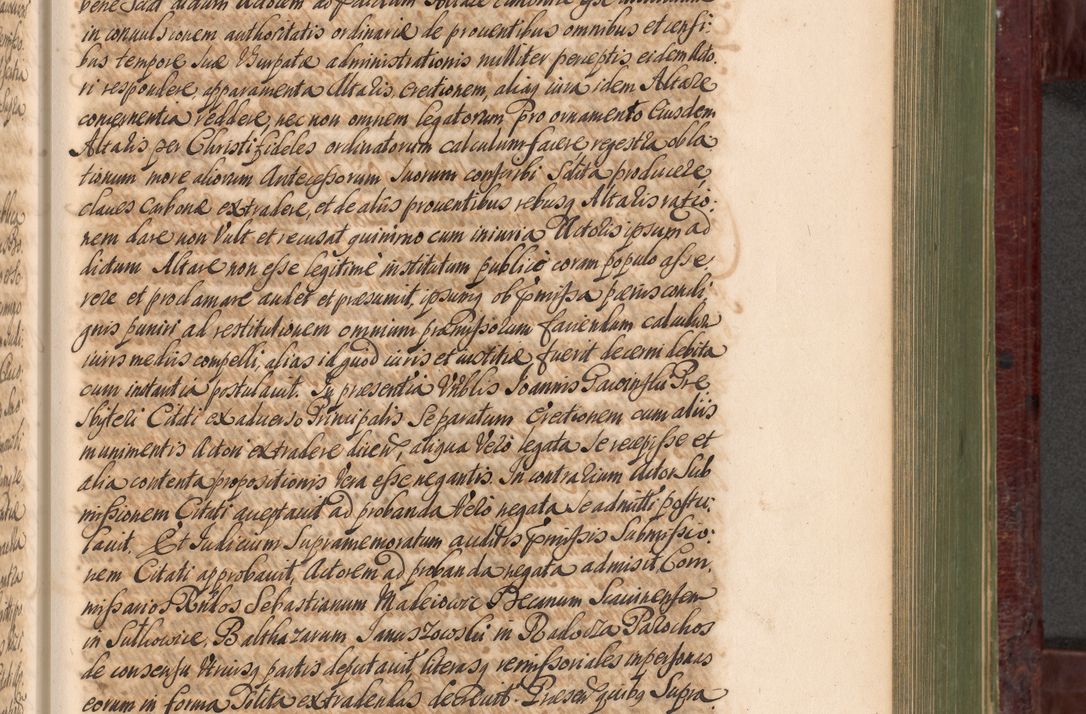 in convulsionem authoritatis ordinariæ de prouentibus omnibus et censi
bus tempore suæ Vsurpatæ administrationis nulliter perceptis, eidem Acto
ri respondere, apparamenta Altaris, Erectionem, aliaq iura idem Altare
concernentia reddere, nec non omnem legatorum pro ornamento Eiusdem
Altaris per Christi fideles ordinatorum calculum facere regestra obla
tionum more aliorum Antecessorum suorum conscribi producere,
claues Carbonæ extradere, et de aliis prouentibus rebusq Altaris ratio:
nem dare non Vult et recusat quinimo cum iniuria Actoris ipsum ad
dictum Altare non esse legitimè institutum publicè coram populo asse
rere et proclamare audet et præsumit, ipsumq ob præmissa pænis condi
gnis puniri ad restitutionem omnium præmissorum faciendam calculum
iuris mediis compelli, alias id quod iuris et iustitiæ fuerit decerni debita
cum instantia postulauit. In præsentia Vrblis Joannis Pre
sbyteri Citati ex aduerso Principalis separatum Erectionem cum aliis
munimentis Actori extradere dicen, aliqua Vero legata se recepisse et
alia contenta propositionis Vera esse negantis. In contrarium Actor sub
missionem Citati acceptauit ad probanda Vero negata se admitti postu:
lauit. Et Judicium supramemoratum auditis præmissis submissio:
nem Citati approbauit, Actorem ad probanda negata admisit Com,
missarios Rndos Sebastianum Madeiowic Decanum Scauinensem
in Sulkowice, Balthazarum Januszowski in Radocza Parochos
de consensu Vtriusq partis deputauit, literasq remissoriales in personas
eorum in forma solita extradendas decreuit. Præsen quibq Supra